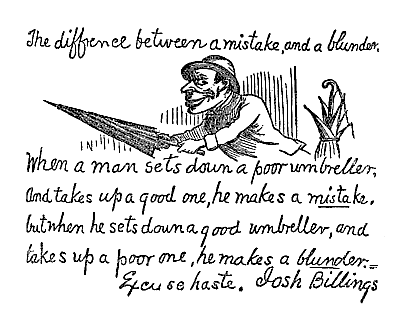 The diffrence between a mistake, and a blunder.
When a man sets doun a poor umbreller,
and takes up a good one, he makes a mistake.
but when he sets doun a good umbreller, and
takes up a poor one, he makes a blunder.=
Excuse haste. Josh Billings